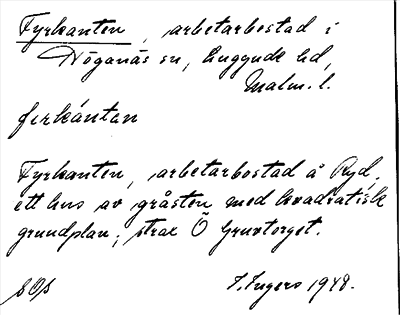 Fyrkanten, arbetarbostad i
Höganäs sn, Luggude hd,
Malm. l.
firkántan
Fyrkanten, arbetarbostad å Ryd,
ett hus av gråsten med kvadratisk
grundplan, strax Ö Gruvtorget.
I. Ingers 1948.